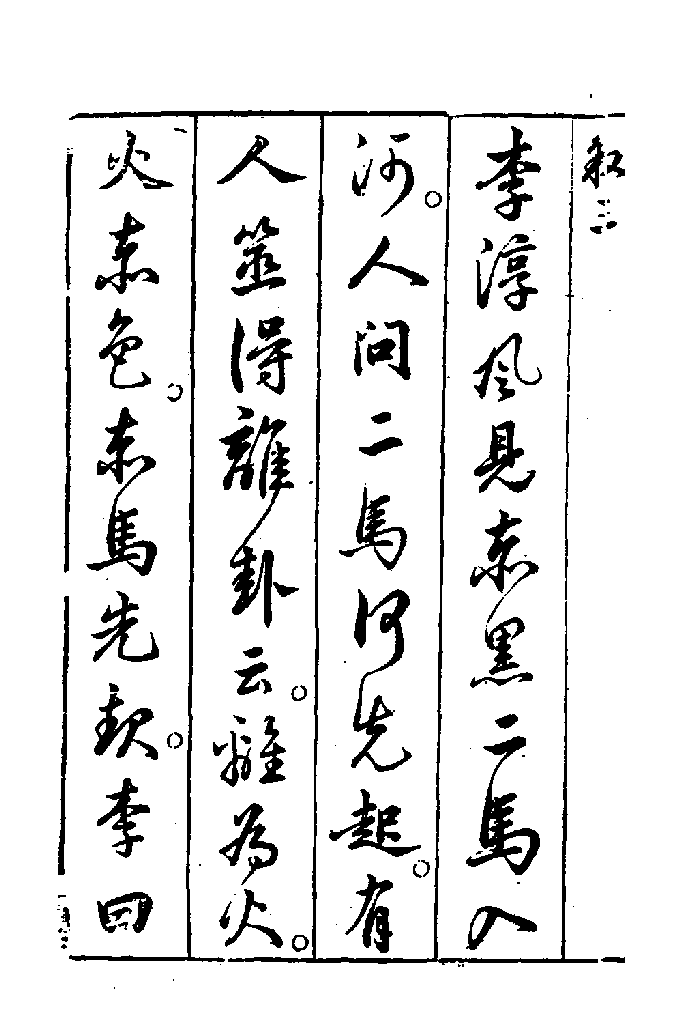 敘三
李淳風見赤黑二馬入
河。人問二馬何先起。有
人筮得離卦云。離為火。
火赤色。赤馬先起。李曰